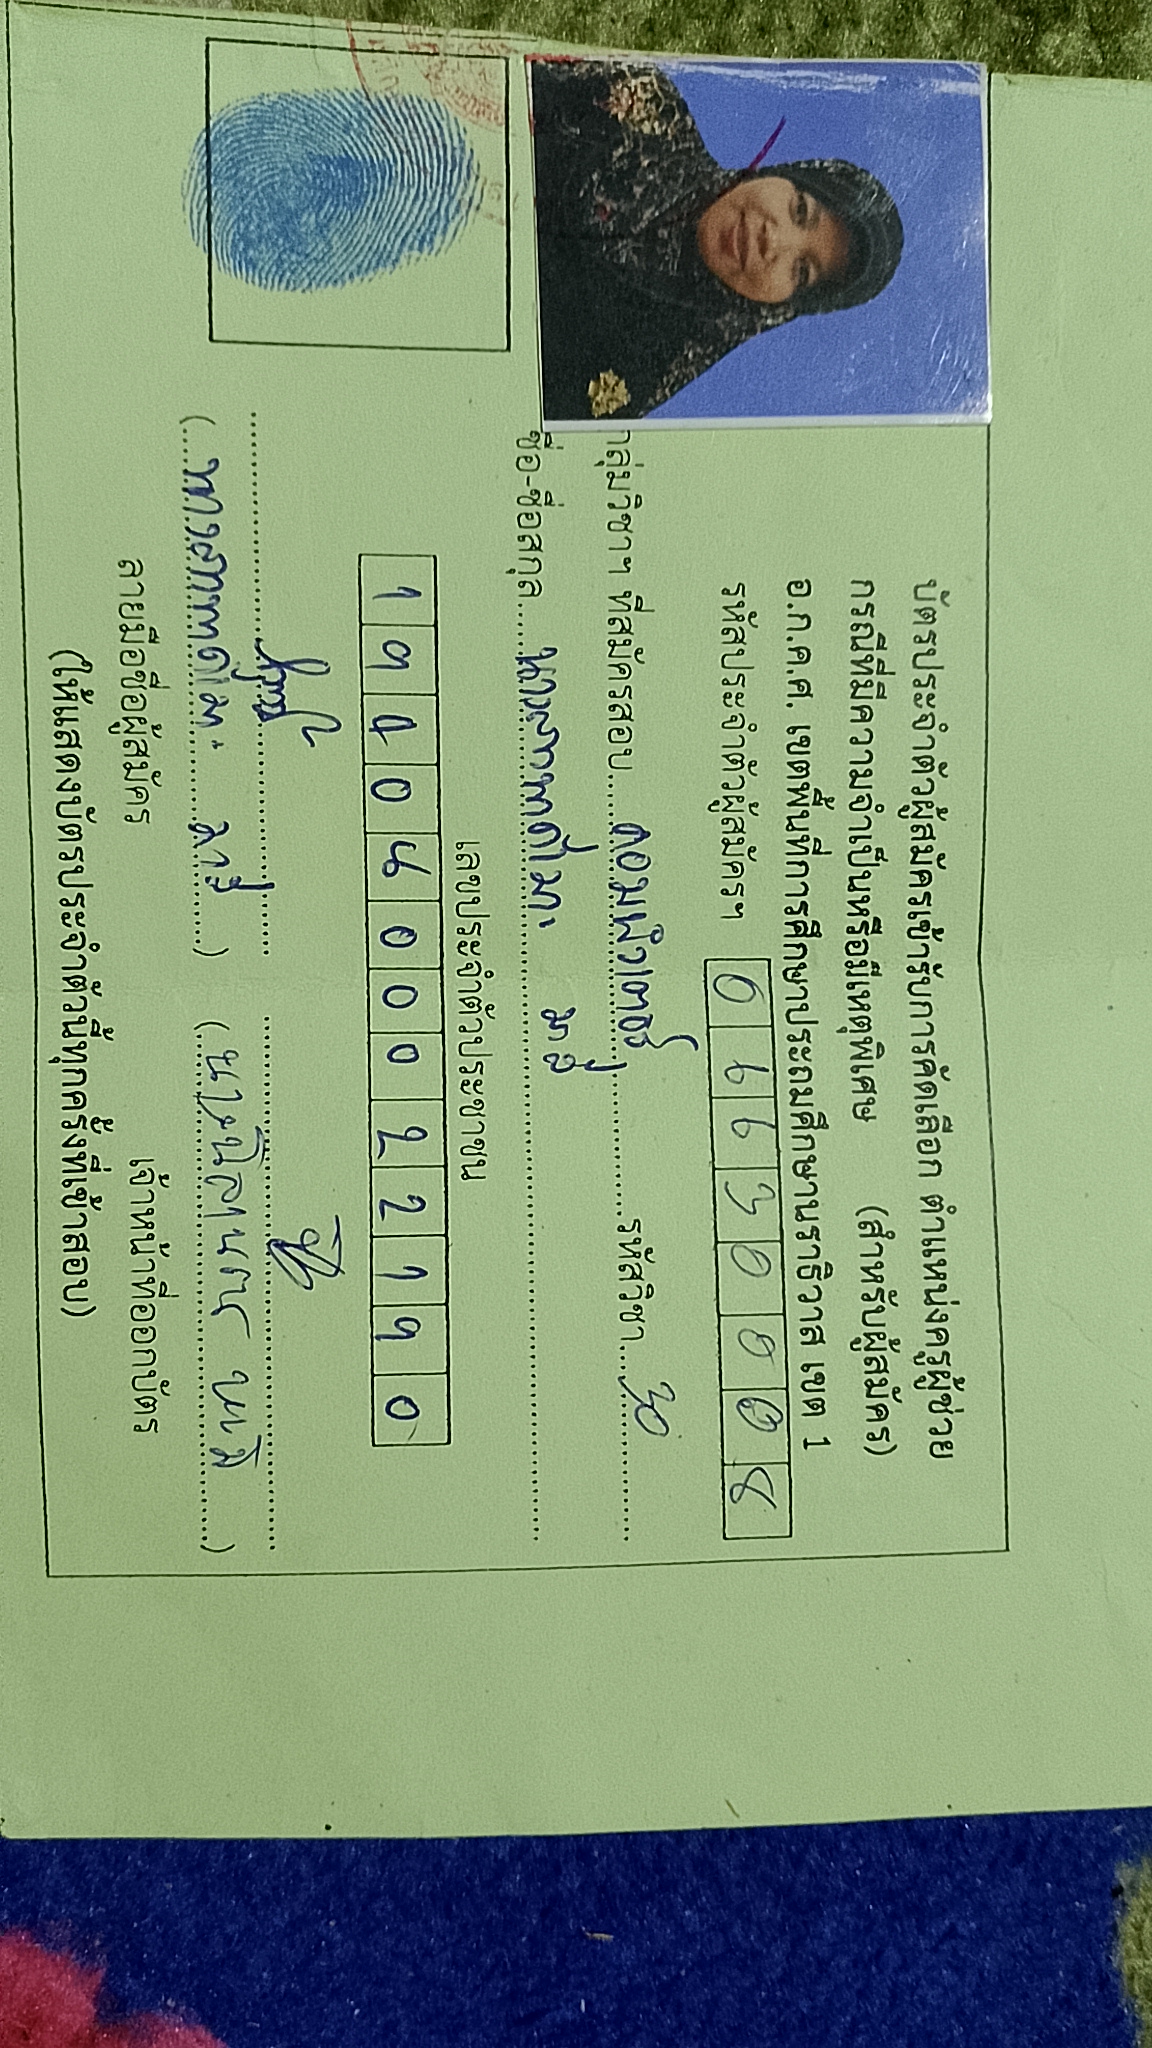 บัตรประจำตัวผู้สมัครเข้ารับการคัดเลือก ตำแหน่งครูผู้ช่วย
กรณีที่มีความจำเป็นหรือมีเหตุพิเศษ (สำหรับผู้สมัคร)
อ.ก.ค.ศ. เขตพื้นที่การศึกษาประถมศึกษานราธิวาส เขต 1
รหัสประจำตัวผู้สมัครฯ 66630008
กลุ่มวิชาฯ ที่สมัครสอบ คอมพิวเตอร์ รหัสวิชา 30
ชื่อ-ชื่อสกุล
เลขประจำตัวประชาชน
1 9 4 0 4 0 0 0 2 2 1 9 0
ลายมือชื่อผู้สมัคร เจ้าหน้าที่ออกบัตร
(ให้แสดงบัตรประจำตัวนี้ทุกครั้งที่เข้าสอบ)